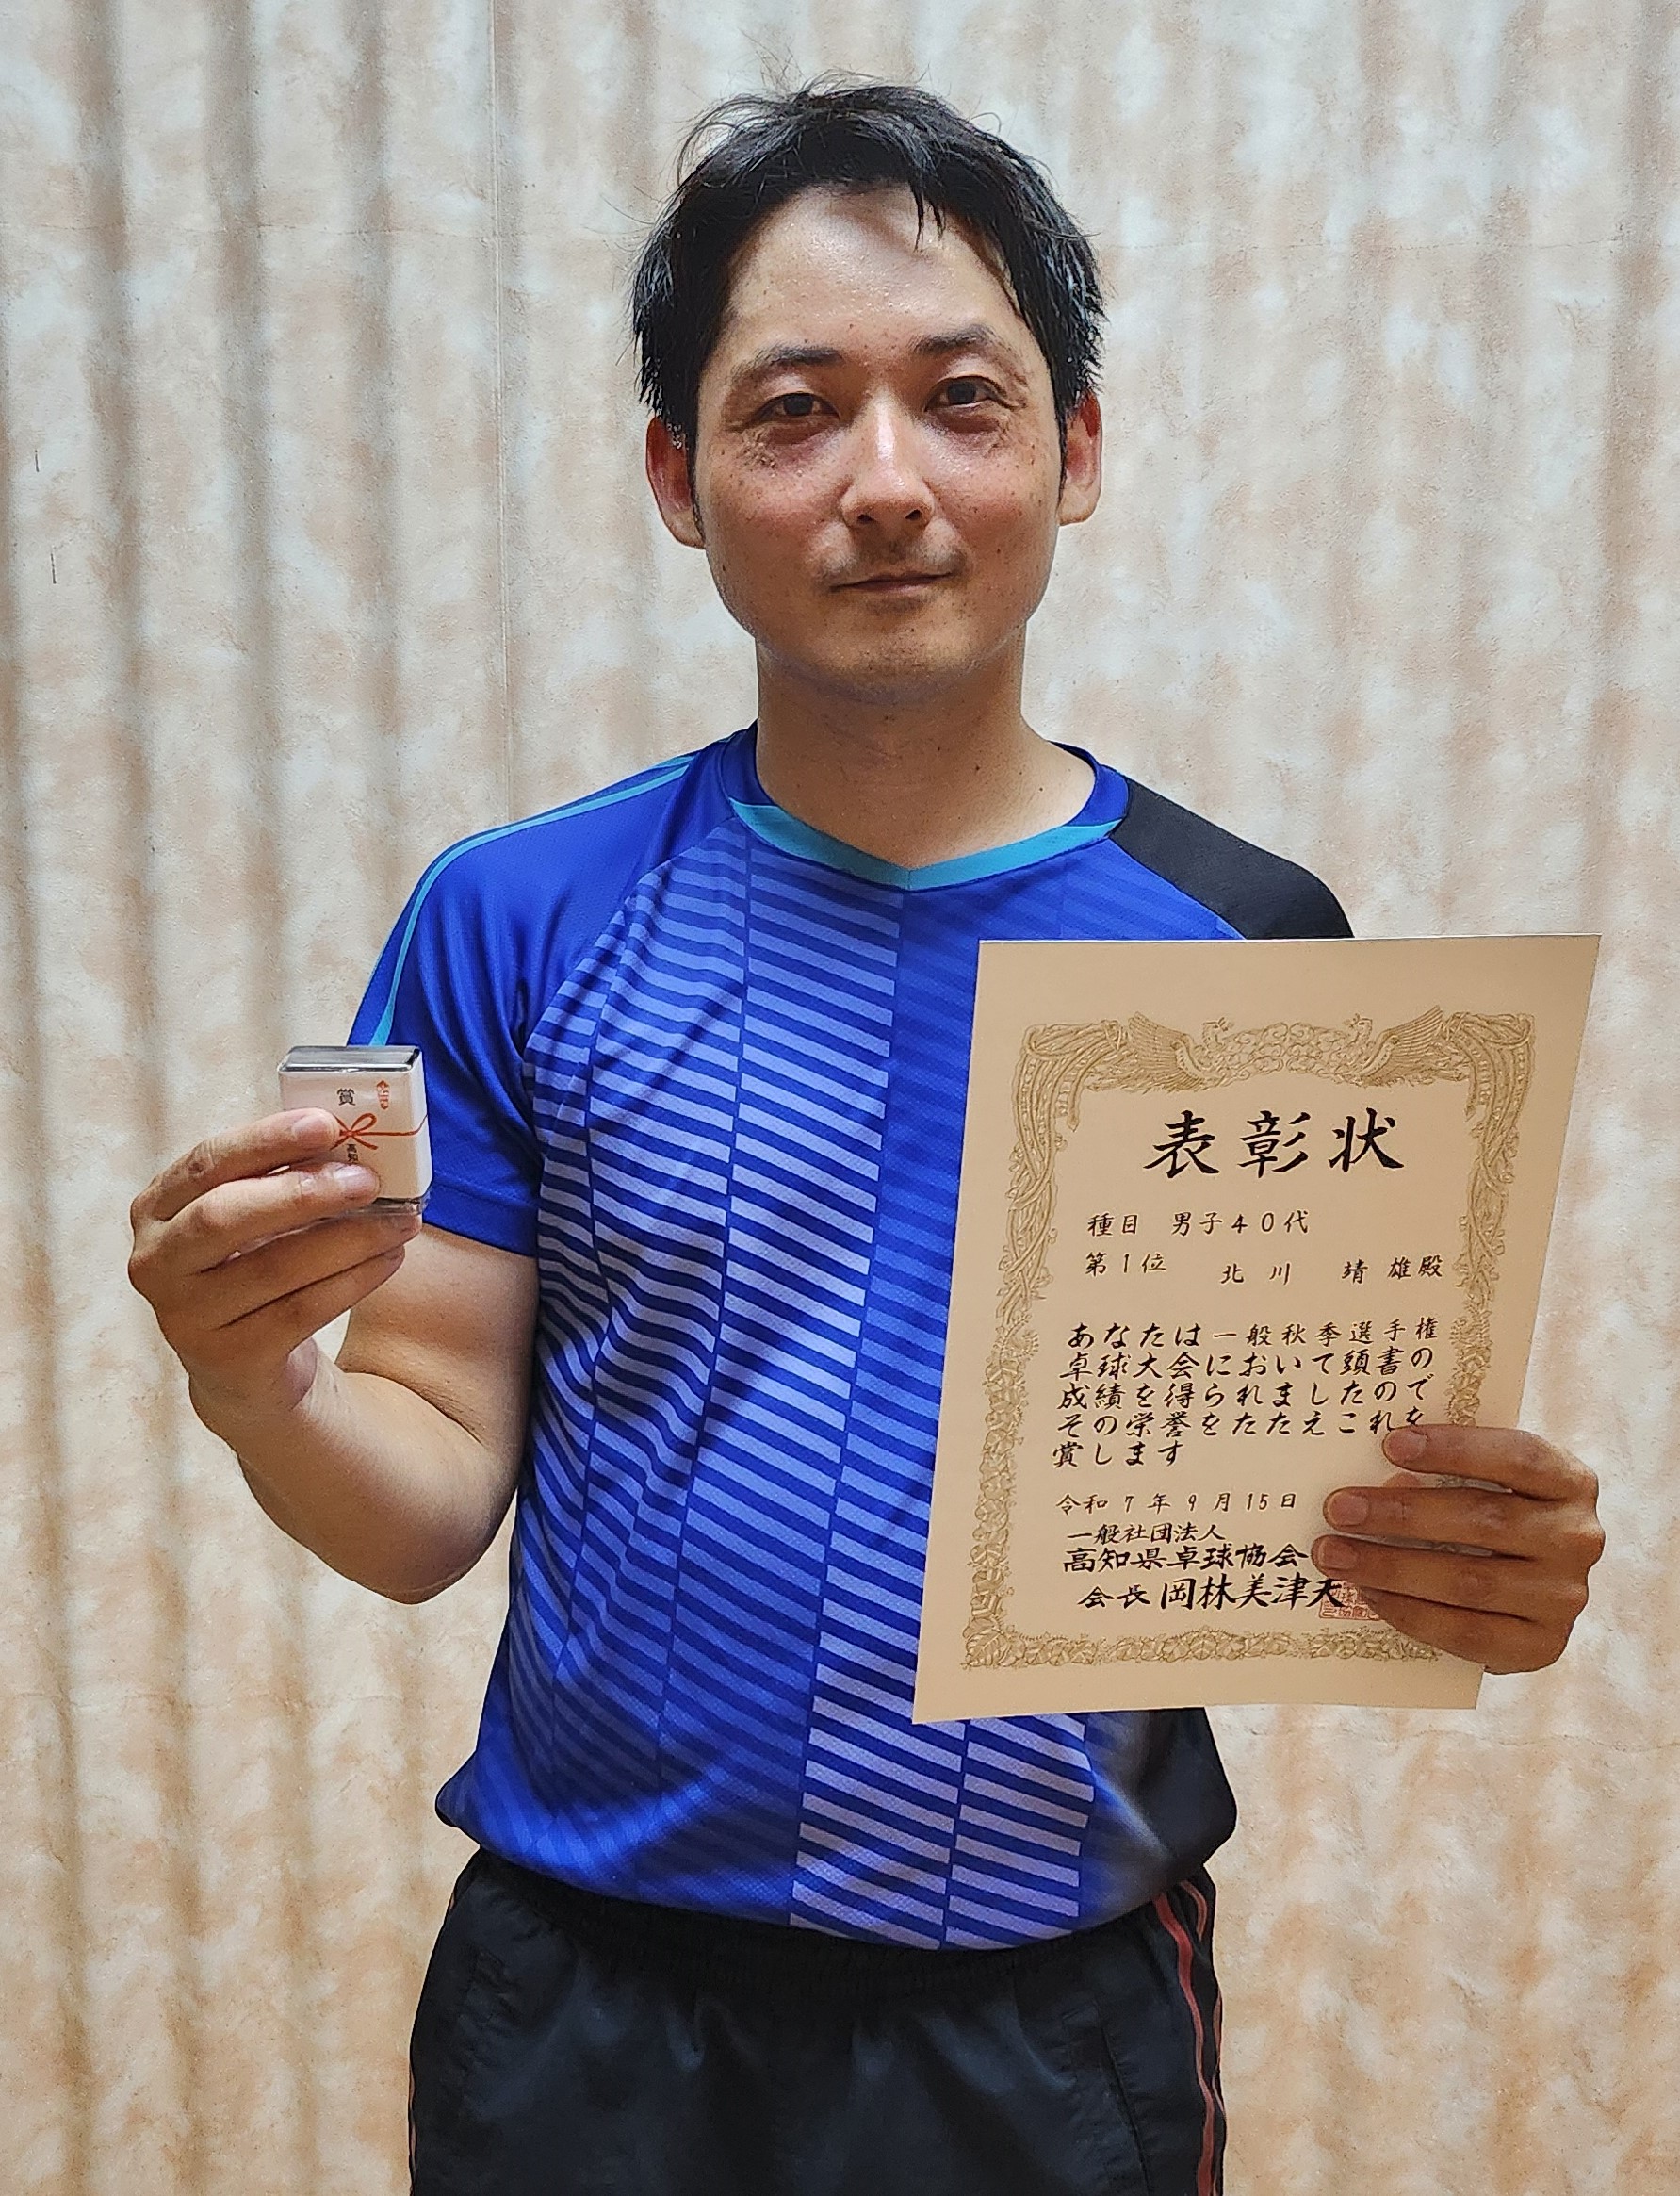 賞
高知
表彰状
種目 男子40代
第1位 北川 靖雄殿
あなたは一般秋季選手権
卓球大会において頭書の
成績を得られましたので
その栄誉をたたえこれを
賞します
令和7年9月15日
一般社団法人
高知県卓球協会
会長 岡林美津夫